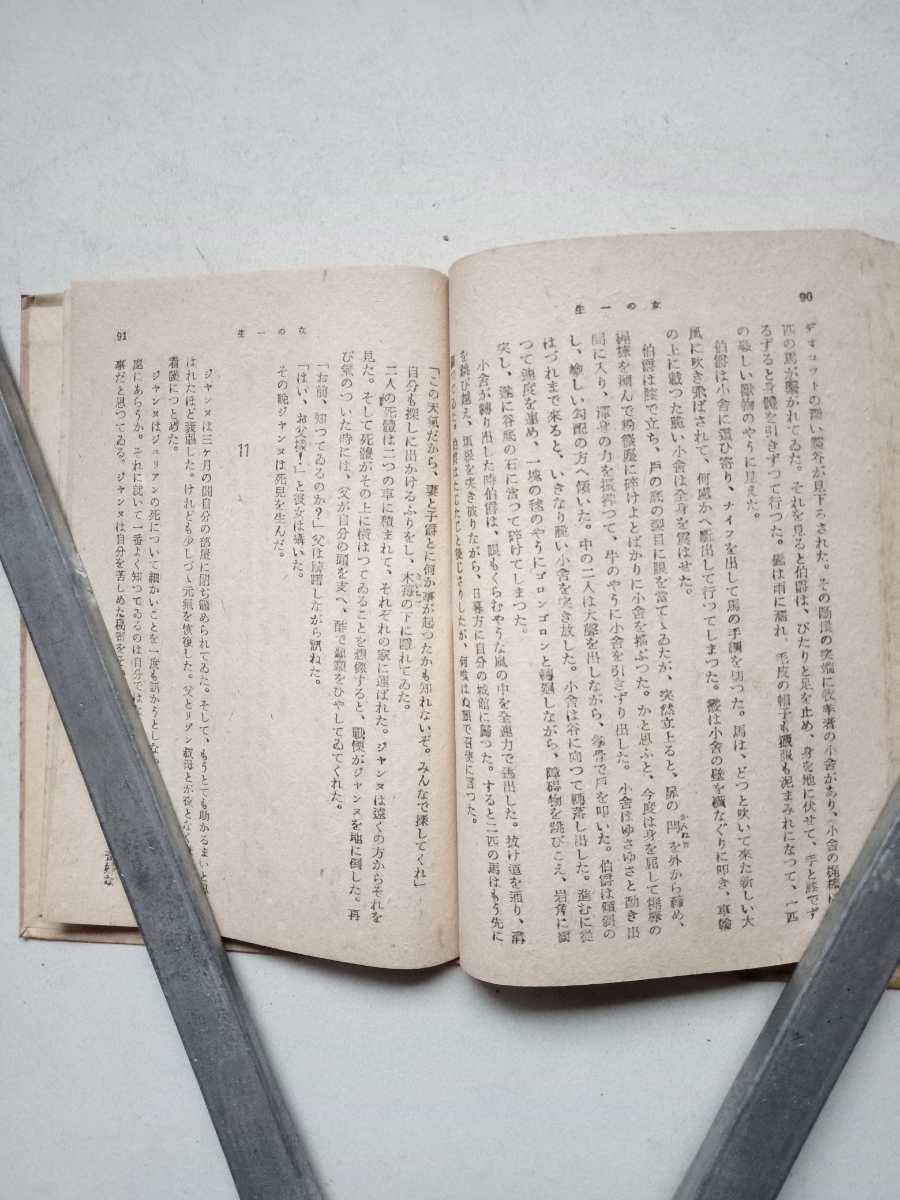 90
女の一生
の馬が繋がれてゐた。それを見ると伯爵は、ぴたりと足を止め、身を地に伏せて、手と膝でず
るずると身體を引きずつて行つた。
の獸物のやうに見えた。
伯爵は小舍に這ひ寄り、ナイフを出して馬の手綱を切つた。馬は、どつと吹いて來た新しい大
風に吹き飛ばされて、何處かへ駈出して行つてしまつた。霰は小舍の壁を橫なぐりに叩き、車輪
の上に載つた脆い小舍は全身を震はせた。
伯爵は膝で立ち、戶の底の裂目に眼を當てゝゐたが、突然立上ると、扉の閂を外から締め、
梶棒を摑んで粉微塵に碎けよとばかりに小舍を搖ぶつた。かと思ふと、今度は身を屈して梶棒の
間に入り、渾身の力を振搾つて、牛のやうに小舍を引きずり出した。小舍はゆさゆさと動き出
し、嶮しい勾配の方へ傾いた。中の二人は大聲を出しながら、拳骨で戶を叩いた。伯爵は傾斜の
はづれまで來ると、いきなり脆い小舍を突き放した。小舍は谷に向つて轉落し出した。進むに從
つて速度を速め、一塊の毬のやうにゴロンゴロンと轉廻しながら、障碍物を跳びこえ、岩角に衝
突し、遂に谷底の石に當つて碎けてしまつた。
小舍が轉り出した時伯爵は、眼もくらむやうな嵐の中を全速力で逃出した。拔け道を通り、溝
を跳び越え、垣根を突き破りながら、日暮方に自分の城館に歸つた。すると二匹の馬はもう先に
91
女の一生
「この天氣だから、妻と子爵とに何か事が起つたかも知れないぞ。みんなで探してくれ」
自分も探しに出かけるふりをし、木蔭の下に隱れてゐた。
二人の死體は二つの車に積まれて、それぞれの家に運ばれた。ジャンヌは遠くの方からそれを
見た。そして死體がその上に橫はつてゐることを想像すると、戰慄がジャンヌを地に倒した。再
び氣のついた時には、父が自分の頭を支へ、醋で顳顬をひやしてゐてくれた。
「お前、知つてゐるのか?」父は躊躇しながら訊ねた。
「はい、お父樣!」と彼女は囁いた。
その晚ジャンヌは死兒を生んだ。
11
ジャンヌは三ヶ月の間自分の部屋に閉ぢ籠められてゐた。そして、もうとても助かるまいと思
はれたほど衰弱した。けれども少しづゝ元氣を恢復した。父とリゾン叔母とが夜となく
看護につとめた。
ジャンヌはジュリアンの死について細かいことを一度も訊かうとしな
處にあらうか。それに就いて一番よく知つてゐるのは自分では
事だと思つてゐる。ジャンヌは自分を苦しめた秘密をそ